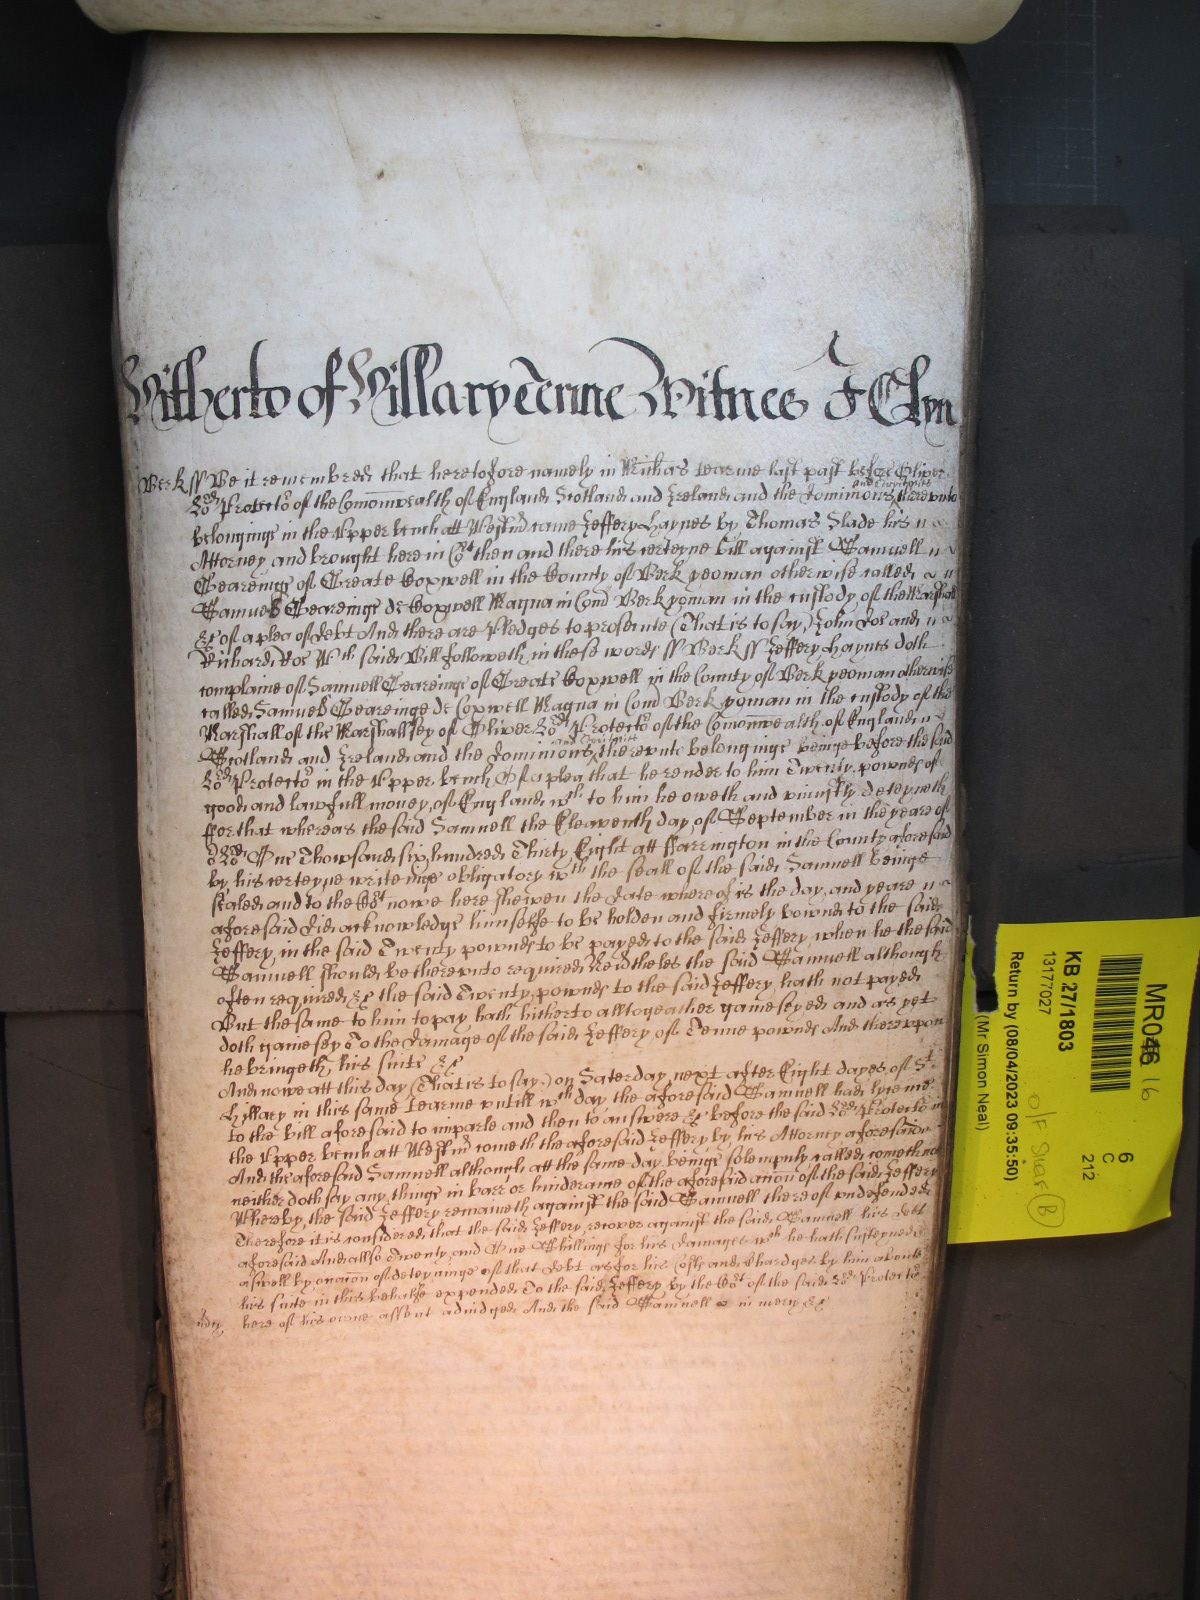 Hitherto of Hillary Terme Witnes J Glyn
Berk ss Be it remembred that heretofore namely in Michas tearme last past before Oliver
Lord Protector of the Comonwealth of England Scotland and Ireland and the Dominions and Territories thereunto
belonginge in the Upper bench att Westmr came Jeffery Haynes by Thomas Slade his
Attorney and brought here in Cort then and there his certeyne bill against Samuell
Gearinge of Greate Coxwell in the County of Berk yeoman otherwise called
Samuel Gearinge de Coxwell Magna in Com Berk yoman in the custody of the Marshall
&c of a plea of debt And there are Pledges to prosecute (That is to say) John Doe and
Richard Roe Wch said Bill followeth in these words ss Berk ss Jeffery Haynes doth
complaine of Samuell Gearinge of Greate Coxwell in the County of Berk yeoman otherwise
called Samuel Gearinge de Coxwell Magna in Com Berk yoman in the custody of the
Marshall of the Marshallsey of Oliver Lord Protector of the Comonwealth of England
Scotland and Ireland and the Dominions and Territories thereunto belonginge beinge before the said
Lord Protector in the Upper bench Of a plea that he render to him Twenty pownds of
good and lawfull money of England wch to him he oweth and uniustly deteyneth
For that whereas the said Samuell the Eleaventh day of September in the yeare of
or Lord One Thowsand six hundred Thirty Eight att Farrington in the County aforesaid
by his certeyne writeinge obligatory wth the seall of the said Samuell beinge
sealed and to the Cort nowe here shewen the date whereof is the day and yeare
aforesaid did acknowledge himselfe to be holden and firmely bownd to the said
Jeffery in the said Twenty pownds to be payed to the said Jeffery when he the said
Samuell should be thereunto required Neidtheles the said Samuell although
often required &c the said Twenty pownds to the said Jeffery hath not payed
But the same to him to pay hath hitherto alltogeather gameseyed and as yet
doth gamesey To the damage of the said Jeffery of Tenne pownds And thereupon
he bringeth his suite &c
And nowe att this day (That is to say) on Saterday next after Eight dayes of St
Hillary in this same Tearme untill wch day the aforesaid Samuell had lycence
to the bill aforesaid to imparle and then to answere &c before the said Lord Protector in
the Upper bench att Westmr cometh the aforesaid Jeffery by his Attorney aforesaid
And the aforesaid Samuell although att the same day beinge solempnly called cometh not
neither doth say any thinge in barr or hinderance of the aforesaid accion of the said Jeffery
Whereby the said Jeffery remaineth against the said Samuell thereof undefended
Therefore it is considered that the said Jeffery recover against the said Samuell his debt
aforesaid And allso Twenty and One Shillings for his damages wch he hath susteyned
aswell by occasion of deteyninge of that debt as for his costs and Chardges by him about
his suite in this behalfe expended To the said Jeffery by the Cort of the said Lord Protector
here of his owne assent adiudged And the said Samuell in mercy &c
MR046 16
6
C
212
KB 27/1803
13177027
Return by (08/04/2023 09:35:50)
(Mr Simon Neal)
B